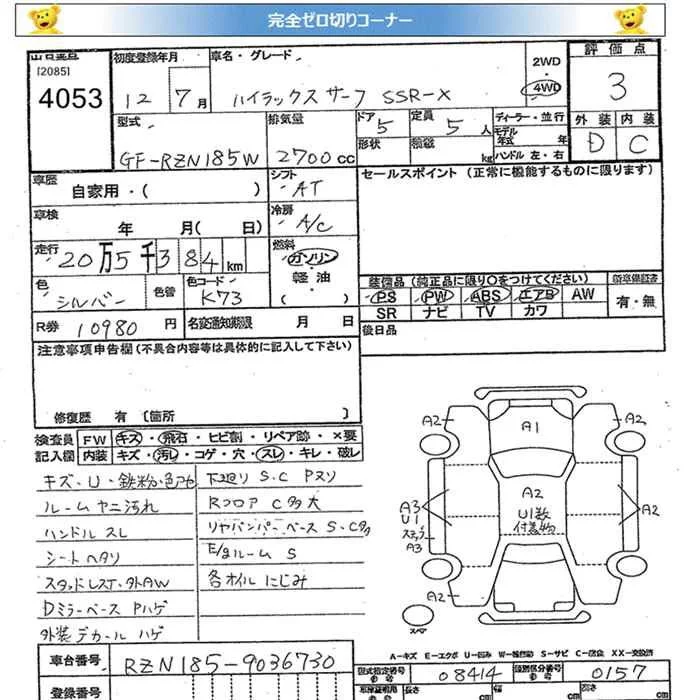 完全ゼロ切りコーナー
[2085]
4053
初度登録年月
12年 7月
車名・グレード
ハイラックスサーフ SSR-X
2WD
4WD
評価点
3
外装 内装
D C
型式
GF-RZN185W
排気量
2700cc
ドア 5
形状
定員 5人
積載 kg
ディーラー・並行
モデル年式 年
ハンドル 左・右
車歴
自家用・( )
シフト
AT
セールスポイント (正常に機能するものに限ります)
車検
年 月( 日)
冷房
A/C
走行
20万5千384km
燃料
ガソリン
軽油
( )
色
シルバー
色替
色コード
K73
装備品 (純正品に限り○をつけてください)
新車保証書
PS PW ABS エアB AW
有・無
SR ナビ TV カワ
R券 10980円
名変通知期限 月 日
後日品
注意事項申告欄 (不具合内容等は具体的に記入して下さい)
修復歴 有 [箇所 ]
検査員記入欄
FW キズ・飛石・ヒビ割・リペア跡・×要
内装 キズ・汚レ・コゲ・穴・スレ・キレ・破レ
キズ・U・鉄粉・色アセ
ルームヤニ汚れ
ハンドルスレ
シートヘタリ
スタッドレスT・外AW
Dミラーベース Pハゲ
外装デカールハゲ
下廻り S.C Pヌリ
Rフロア C多大
リヤバンパーベース S・C多
E/gルーム S
各オイルにじみ
A2 A1 A2
A2
U1数
付着物
A3
U1
ステップ
A3
A2
A2 A2
スペア
A-キズ E-エクボ U-凹み W-補修跡 S-サビ C-腐食 XX-交換済
車台番号 RZN185-9036730
型式指定番号 08414
類別区分番号 0157
登録番号
cm 幅 cm 高 cm